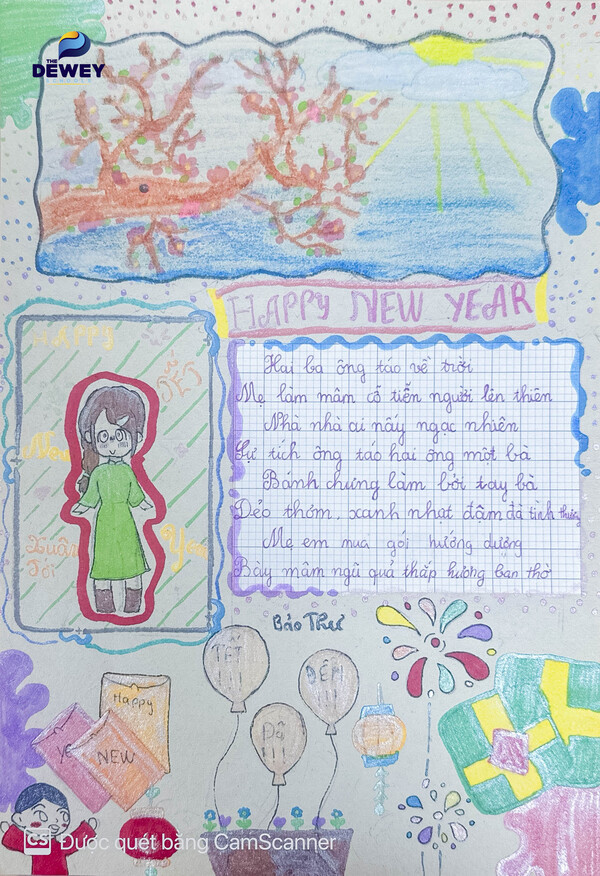 THE
DEWEY
HAPPY NEW YEAR
HAPPY
TẾT
New
Xuân
Tới
Year
Hai ba ông táo về trời
Mẹ làm mâm cỗ tiễn người lên thiên
Nhà nhà ai nấy ngạc nhiên
Sự tích ông táo hai ông một bà
Bánh chưng làm bởi tay bà
Dẻo thơm, xanh nhạt đậm đà tình thương
Mẹ em mua gói hướng dương
Bày mâm ngũ quả thắp hương ban thờ
Bảo Thư
TẾT
ĐẾN
Đã
!!!
Happy
YE
NEW
CS Được quét bằng CamScanner